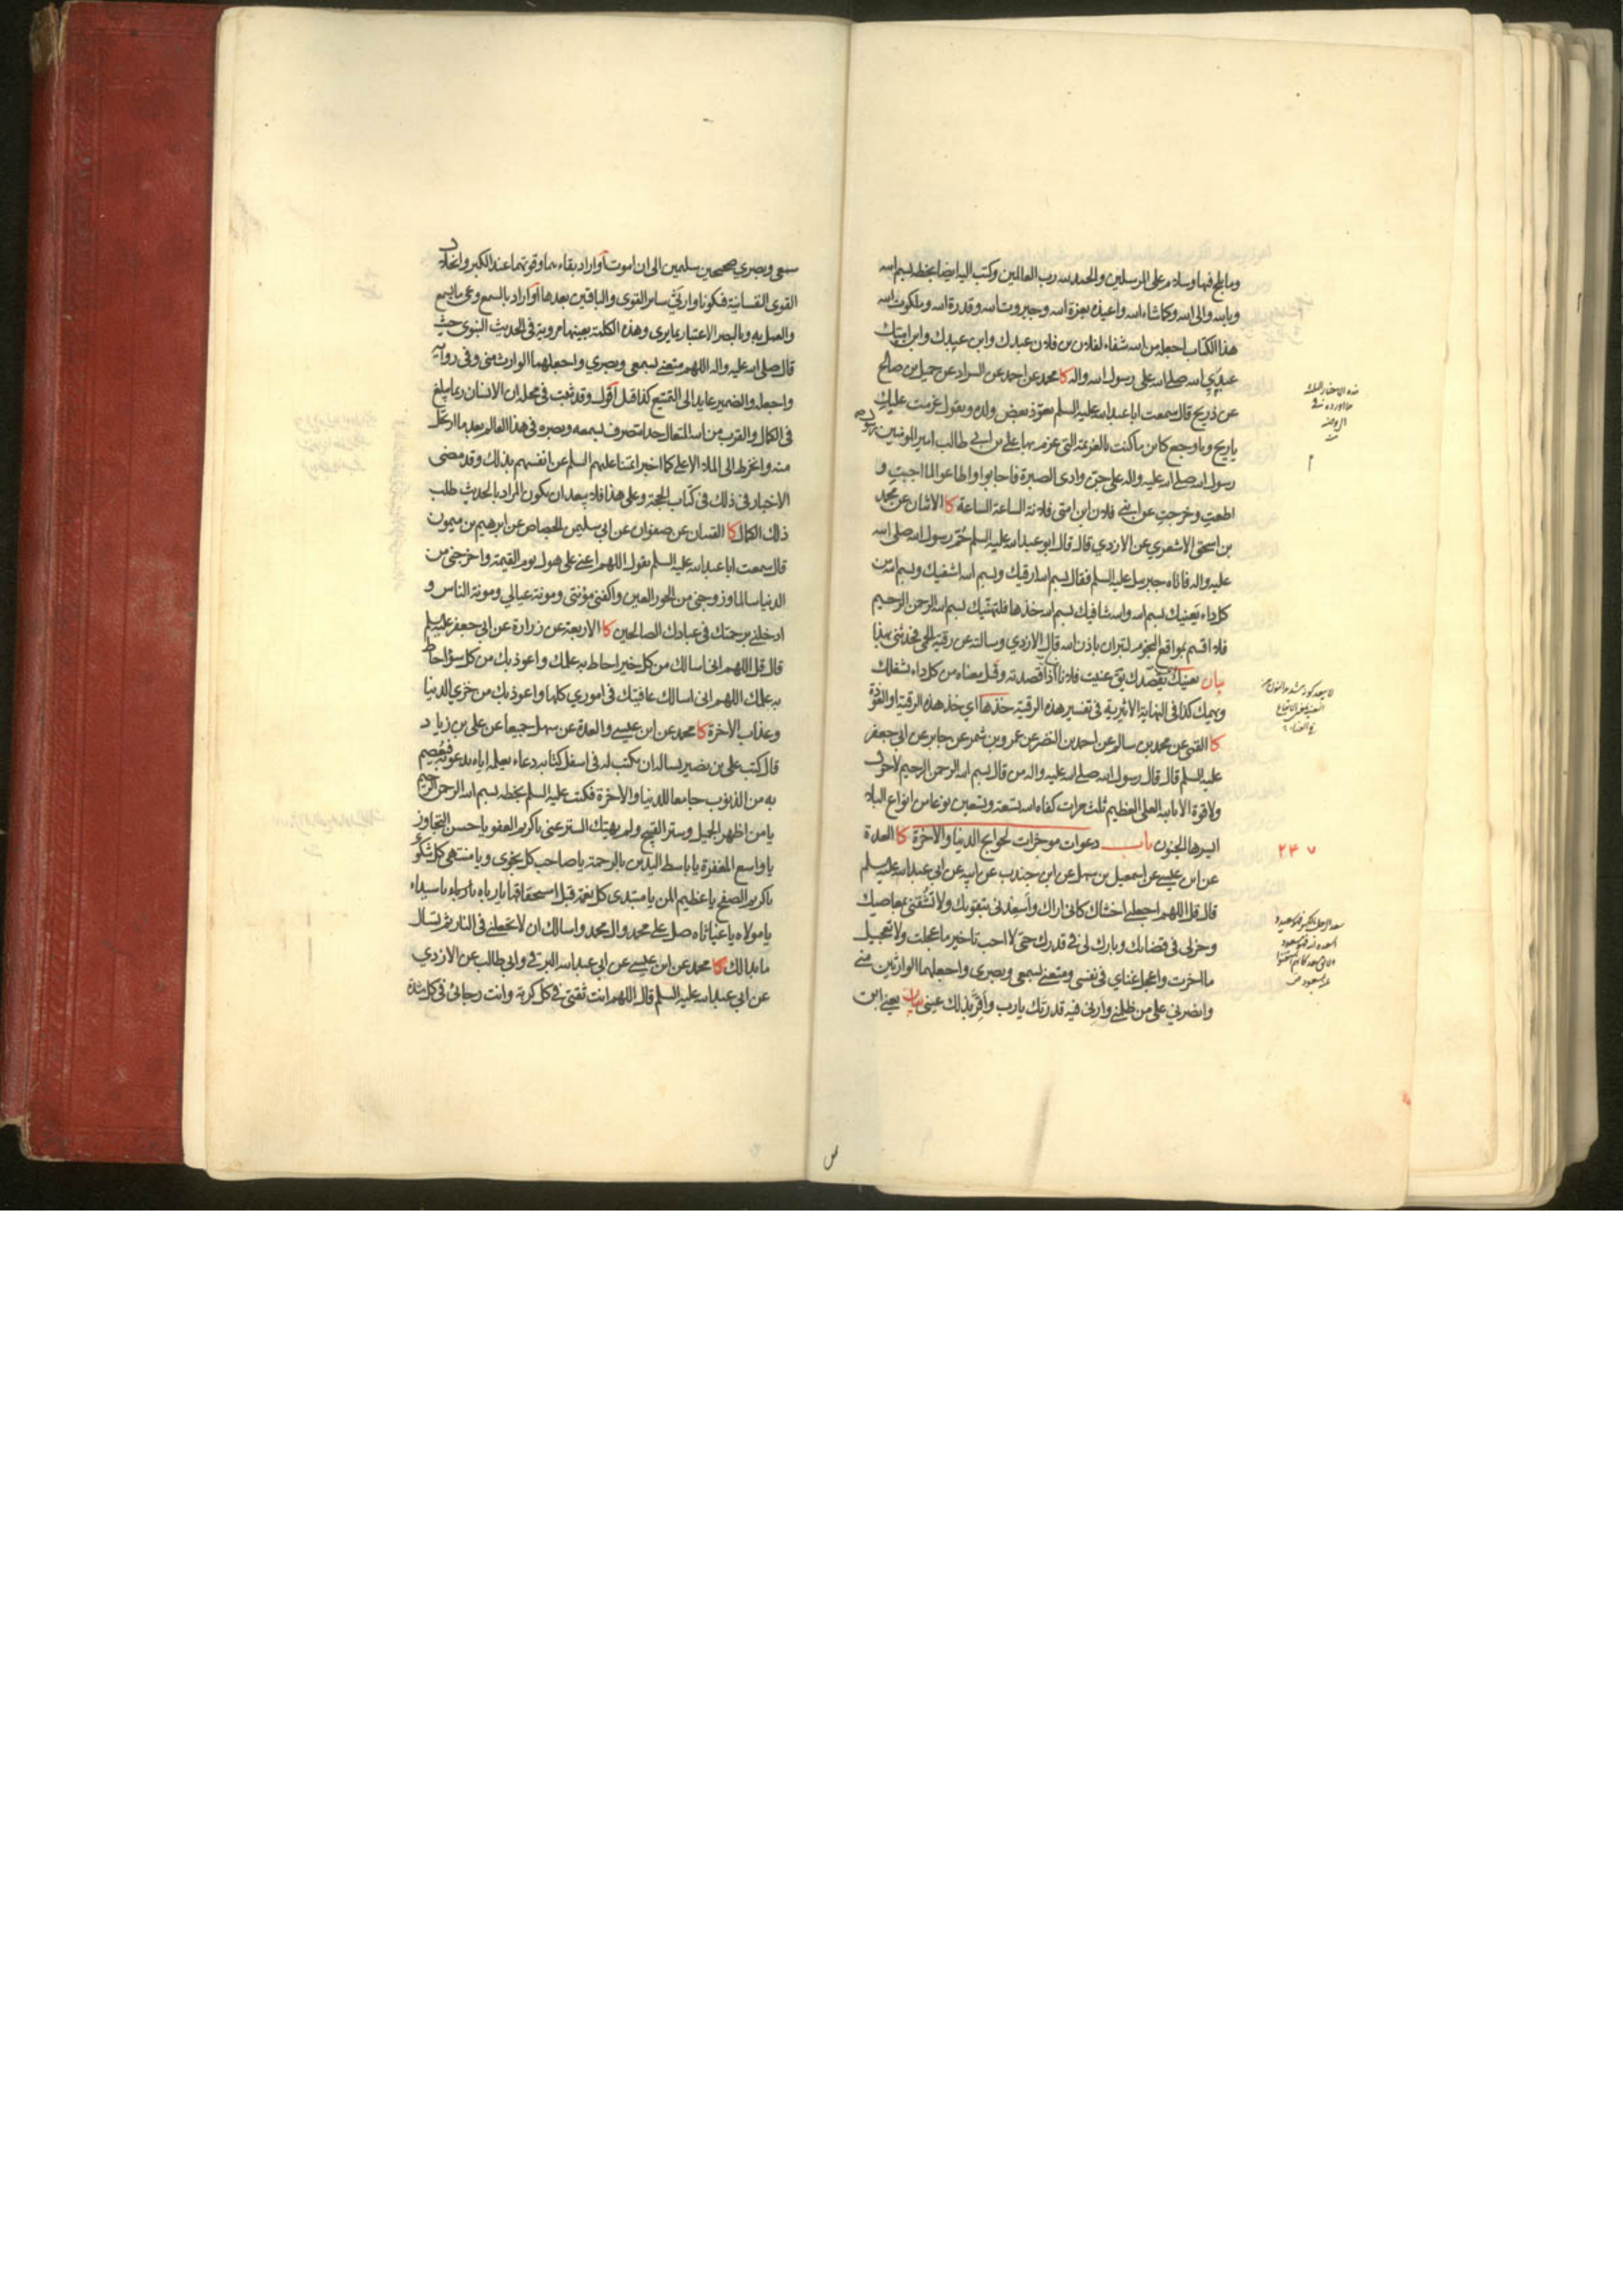 وما يلج فيها وسلام على المرسلين والحمد لله رب العالمين وكتب اليه ايضا بخطه بسم الله
وبالله والى الله وكما شاء الله واعيذه بعزة الله وجبروت الله وقدرة الله وملكوت الله
هذا الكتاب اجعله من الله شفاء لفلان بن فلان عبدك وابن عبدك وابن امتك
عبدي الله صلى الله على رسول الله واله كا محمد عن احمد عن السراد عن جميل بن صالح
عن ذريح قال سمعت ابا عبد الله عليه السلم يعوذ بعض ولده ويقول عزمت عليك
ياريح وياوجع كائن ما كنت بالعزيمة التي عزم بها علي بن ابي طالب امير المؤمنين
رسول الله صلى الله عليه واله على جن وادي الصبرة فاجابوا واطاعوا لما اجبت و
اطعت وخرجت عن ابني فلان ابن امتي فلانة الساعة الساعة كا الاثنان عن محمد
بن اسحق الاشعري عن الازدي قال قال ابو عبد الله عليه السلم حُمّ رسول الله صلى الله
عليه واله فاتاه جبرئيل عليه السلم فقال بسم الله ارقيك وبسم الله اشفيك وبسم الله من
كل داء يعنيك بسم الله والله شافيك بسم الله خذها فلتهنيك بسم الله الرحمن الرحيم
فلا اقسم بمواقع النجوم لتبرأن باذن الله قال الازدي وسالته عن رقية الحمى فحدثني بهذا
بيان يعنيك يقصدك يق عنيت فلانا اذا قصدته وقيل معناه من كل داء يشغلك
ويهمك كذا في النهاية الاثيرية في تفسير هذه الرقية خذها اي خذ هذه الرقية او العوذة
كا القمي عن محمد بن سالم عن احمد بن النضر عن عمرو بن شمر عن جابر عن ابي جعفر
عليه السلم قال قال رسول الله صلى الله عليه واله من قال بسم الله الرحمن الرحيم لا حول
ولا قوة الا بالله العلي العظيم ثلث مرات كفاه الله تسعة وتسعين نوعا من انواع البلاء
ايسرها الجنون باب دعوات موجزات لحوائج الدنيا والاخرة كا العدة
٢٤٧
عن ابن عيسى عن اسمعيل بن سهل عن ابن جندب عن ابيه عن ابي عبد الله عليه السلم
قال قل اللهم اجعلني اخشاك كاني اراك واسعدني بتقويك ولا تشقني بمعاصيك
وخر لي في قضائك وبارك لي في قدرك حتى لا احب تاخير ما عجلت ولا تعجيل
ما اخرت واجعل غناي في نفسي ومتعني بسمعي وبصري واجعلهما الوارثين مني
وانصرني على من ظلمني وارني فيه قدرتك يارب واقر بذلك عيني بيان يعني ابق
سمعي وبصري صحيحين سليمين الى ان اموت او اراد بقاءهما وقوتهما عند الكبر وانحلال
القوى النفسانية فيكونا وارثي سائر القوى والباقين بعدها او اراد بالسمع وعي ما يسمع
والعمل به وبالبصر الاعتبار بما يرى وهذه الكلمة بعينها مروية في الحديث النبوي حيث
قال صلى الله عليه واله اللهم متعني بسمعي وبصري واجعلهما الوارث مني وفي رواية
واجعله والضمير عايد الى التمتيع كذا قيل اقول وقد ثبت في محله ان الانسان ربما يبلغ
في الكمال والقرب من الله المتعال حدا يتصرف بسمعه وبصره في هذا العالم بعد ما ارتحل
منه وانخرط الى الملاء الاعلى كما اخبر ائمتنا عليهم السلم عن انفسهم بذلك وقد مضى
الاخبار في ذلك في كتاب الحجة وعلى هذا فلا يبعد ان يكون المراد بالحديث طلب
ذلك الكمال كا القميان عن صفوان عن ابي سليمن الجصاص عن ابرهيم بن ميمون
قال سمعت ابا عبد الله عليه السلم يقول اللهم اعني على هول يوم القيمة واخرجني من
الدنيا سالما وزوجني من الحور العين واكفني مؤنتي ومونة عيالي ومونة الناس و
ادخلني برحمتك في عبادك الصالحين كا الاربعة عن زرارة عن ابي جعفر عليه السلم
قال قل اللهم اني اسالك من كل خير احاط به علمك واعوذ بك من كل سؤ احاط
به علمك اللهم اني اسالك عافيتك في اموري كلها واعوذ بك من خزي الدنيا
وعذاب الاخرة كا محمد عن ابن عيسى والعدة عن سهل جميعا عن علي بن زياد
قال كتب علي بن بصير يساله ان يكتب له في اسفل كتابه دعاء يعلمه اياه يدعو به فيعصم
به من الذنوب جامعا للدنيا والاخرة فكتب عليه السلم بخطه بسم الله الرحمن الرحيم
يا من اظهر الجميل وستر القبيح ولم يهتك الستر عني ياكريم العفو ياحسن التجاوز
ياواسع المغفرة ياباسط اليدين بالرحمة ياصاحب كل نجوى ويا منتهى كل شكوى
ياكريم الصفح ياعظيم المن يامبتدئ كل نعمة قبل استحقاقها يارباه يارباه ياسيداه
يامولاه ياغياثاه صل على محمد وال محمد واسالك ان لا تجعلني في النار ثم تسال
ما بدا لك كا محمد عن ابن عيسى عن ابي عبد الله البرقي وابي طالب عن الازدي
عن ابي عبد الله عليه السلم قال اللهم انت ثقتي في كل كربة وانت رجائي في كل شدة